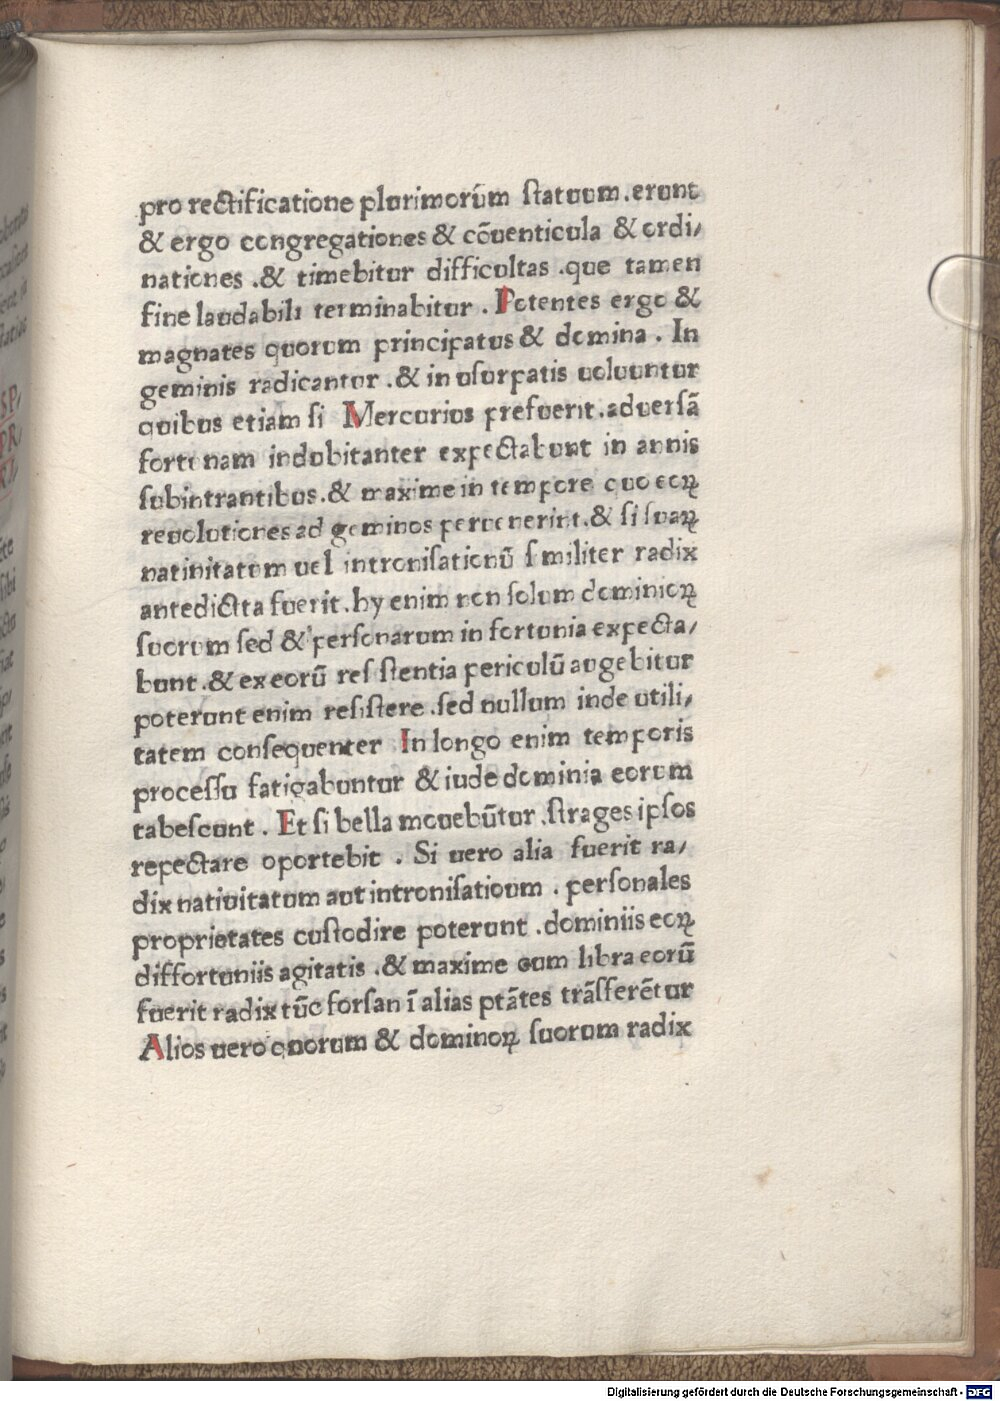 pro rectificatione plurimorúm ſtatuum .erunt
& ergo congregationes & cõuenticula & ordi/
nationes .& timebitur difficultas .que tamen
fine laudabili terminabitur . Potentes ergo &
magnates quorum principatus & domina . In
geminis radicantur .& in uſurpatis uoluuntur
quibus etiam ſi Mercurius prefuerit .aduerſã
fortunam indubitanter expectabunt in annis
ſubintrantibus .& maxime in tempore quo eoꝝ
reuolutiones ad geminos peruenerint .& ſi ſuaꝝ
natiuitatum uel introniſationũ ſimiliter radix
antedictta fuerit .hy enim non ſolum dominioꝝ
ſuorum ſed & perſonarum in fortunia expecta/
bunt .& ex eorũ reſiſtentia periculũ augebitur
poterunt enim reſiſtere .ſed nullum inde utili/
tatem conſequenter In longo enim temporis
proceſſu fatigabuntur & iude dominia eorum
tabeſcunt . Et ſi bella mouebũtur .ſtrages ipſos
repectare oportebit . Si uero alia fuerit ra/
dix natiuitatum aut introniſatioum . perſonales
proprietates cuſtodire poterunt .dominiis eoꝝ
diffortuniis agitatis .& maxime cum libra eorũ
fuerit radix tũc forſan ĩ alias ptãtes trãſferẽtur
Alios uero quorum & dominoꝝ ſuorum radix
Digitalisierung gefördert durch die Deutsche Forschungsgemeinschaft - DFG